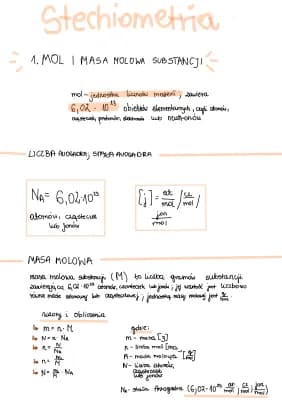 Stechiometria
1. MOL I MASA MOLOWA SUBSTANCJI
mol - jednostka liczności materii, zawiera
6,02 · 10²³ obiektów elementarnych, czyli atomów,
cząsteczek, protonów, elektronów lub neutronów
LICZBA AVOGADRA, STAŁA AVOGADRA
NA = 6,02·10²³
atomów, cząsteczek
lub jonów
[j] = at/mol / cz/mol /
jon/mol
MASA MOLOWA
masa molowa substancji (M) to liczba gramów substancji
zawierająca 6,02·10²³ atomów, cząsteczek lub jonów, jej wartość jest liczbowo
równa masie atomowej lub cząsteczkowej, jednostką masy molowej jest g/mol
wzory i obliczenia
m = n · M
N = n · NA
n = N/NA
n = m/M
N = m/M · NA
gdzie:
m - masa [g]
n - liczba moli [mol]
M - masa molowa [g/mol]
N - liczba atomów,
cząsteczek
lub jonów
NA - stała Avogadra (6,02·10²³ at/mol, cz/mol, jon/mol)